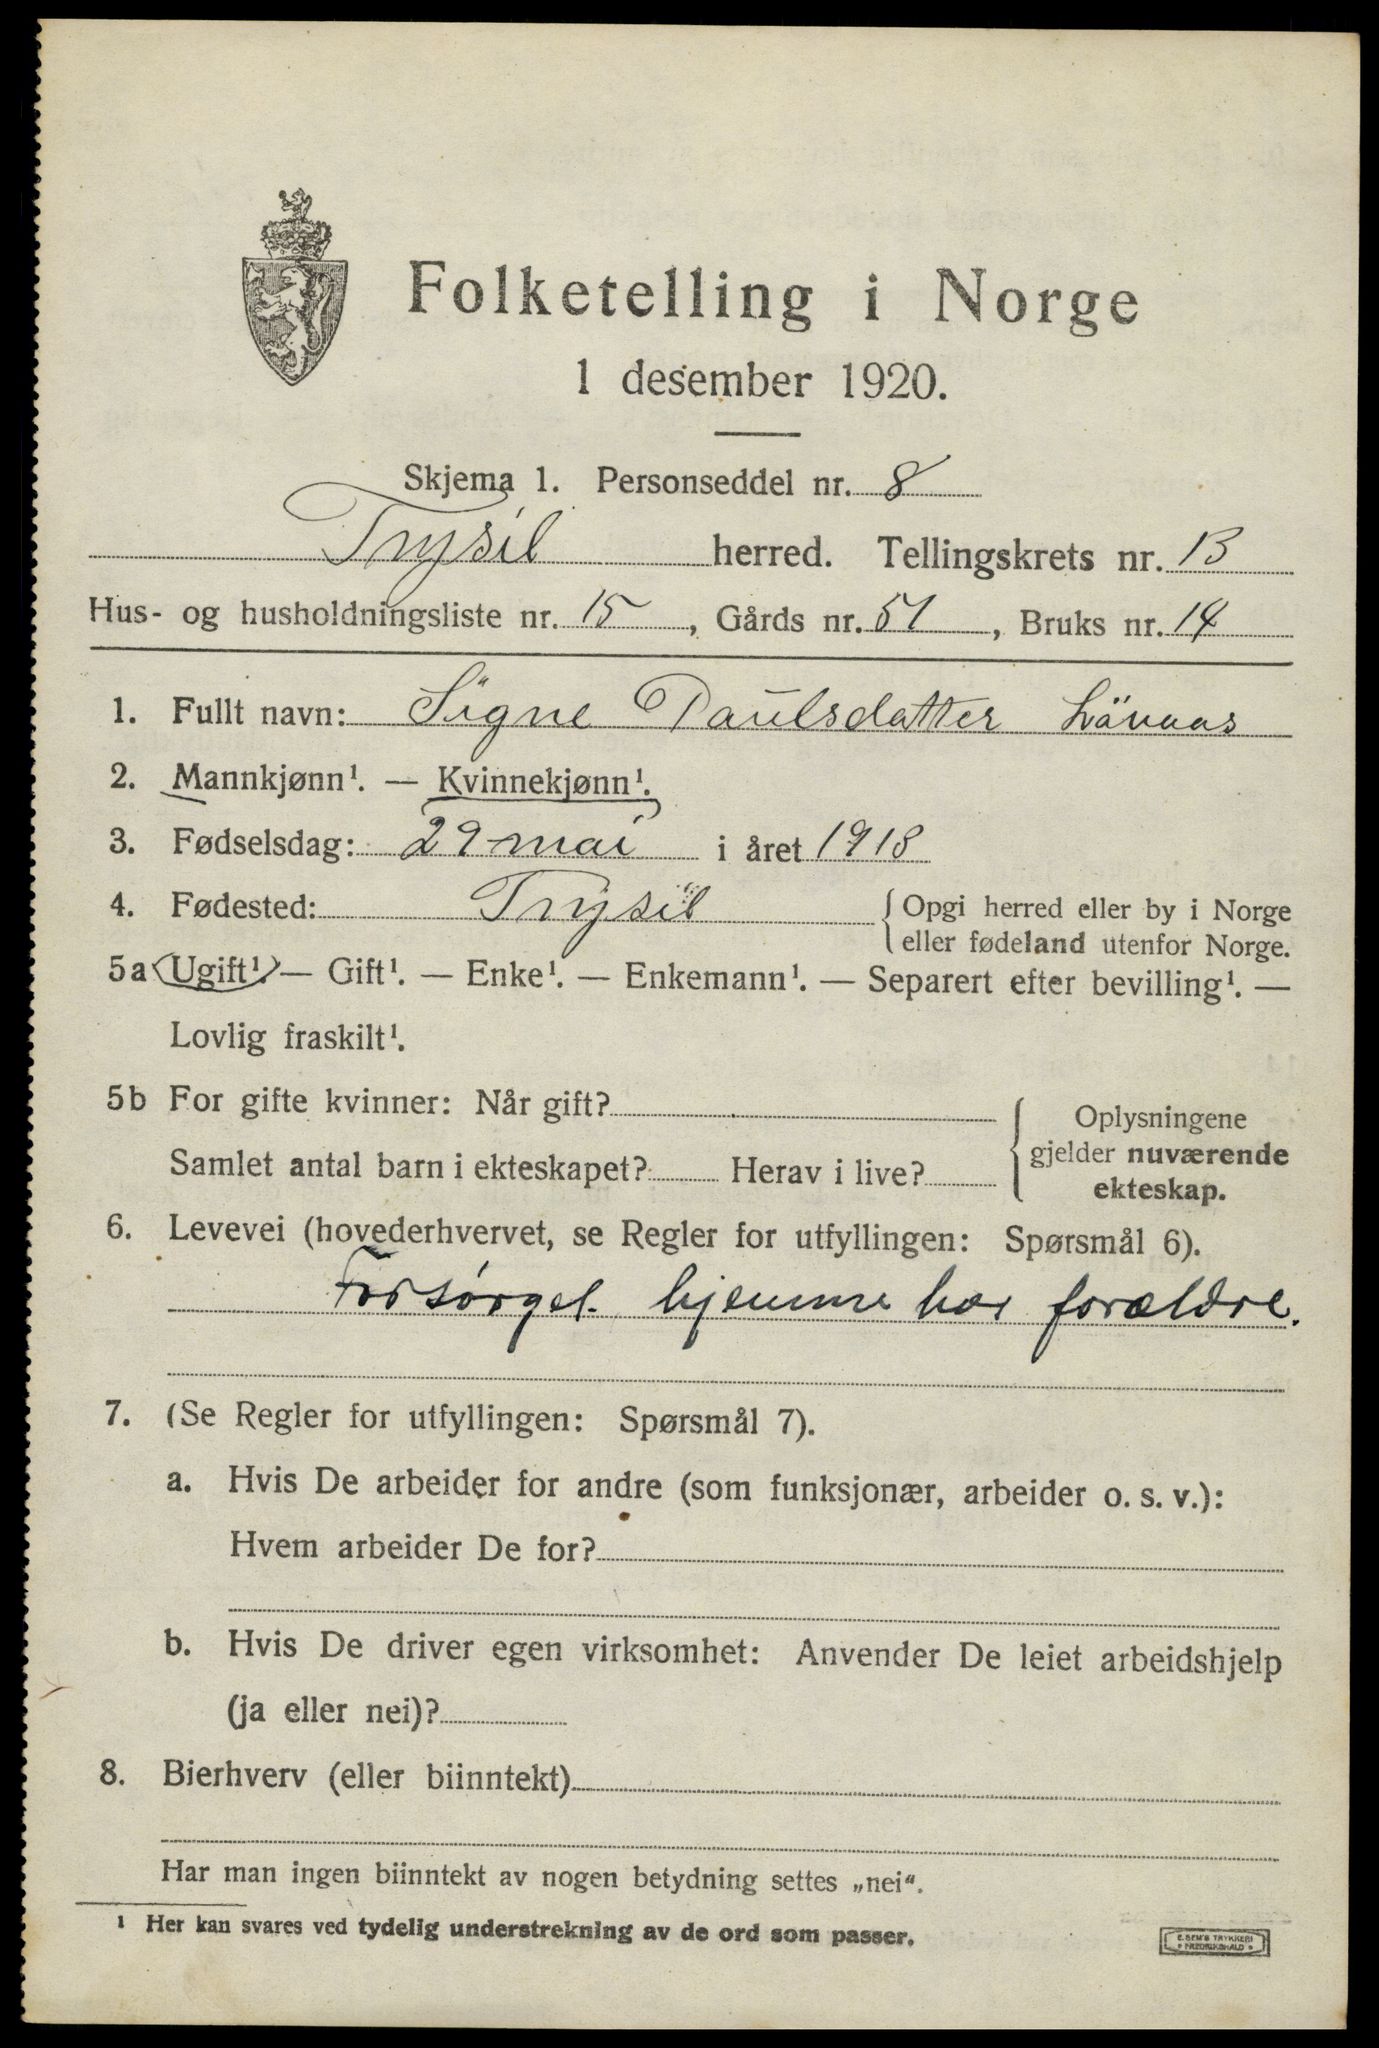 Folketelling i Norge
1 desember 1920.
Skjema 1. Personseddel nr. 8
Trysil herred. Tellingskrets nr. 13
Hus- og husholdningsliste nr. 15, Gårds nr. 51, Bruks nr. 14
1. Fullt navn: Signe Paulsdatter
2. Mannkjønn¹. — Kvinnekjønn¹.
3. Fødselsdag: 29 mai i året 1918
4. Fødested: Trysil { Opgi herred eller by i Norge
eller fødeland utenfor Norge.
5a (Ugift¹.) — Gift¹. — Enke¹. — Enkemann¹. — Separert efter bevilling¹. —
Lovlig fraskilt¹.
5b For gifte kvinner: Når gift?
Samlet antal barn i ekteskapet? Herav i live?
{ Oplysningene
gjelder nuværende
ekteskap.
6. Levevei (hovederhvervet, se Regler for utfyllingen: Spørsmål 6).
Forsørget hjemme hos forældre.
7. (Se Regler for utfyllingen: Spørsmål 7).
a. Hvis De arbeider for andre (som funksjonær, arbeider o. s. v.):
Hvem arbeider De for?
b. Hvis De driver egen virksomhet: Anvender De leiet arbeidshjelp
(ja eller nei)?
8. Bierhverv (eller biinntekt)
Har man ingen biinntekt av nogen betydning settes „nei“.
¹ Her kan svares ved tydelig understrekning av de ord som passer.
E. SEM'S TRYKKERI
• FREDRIKSHALD •